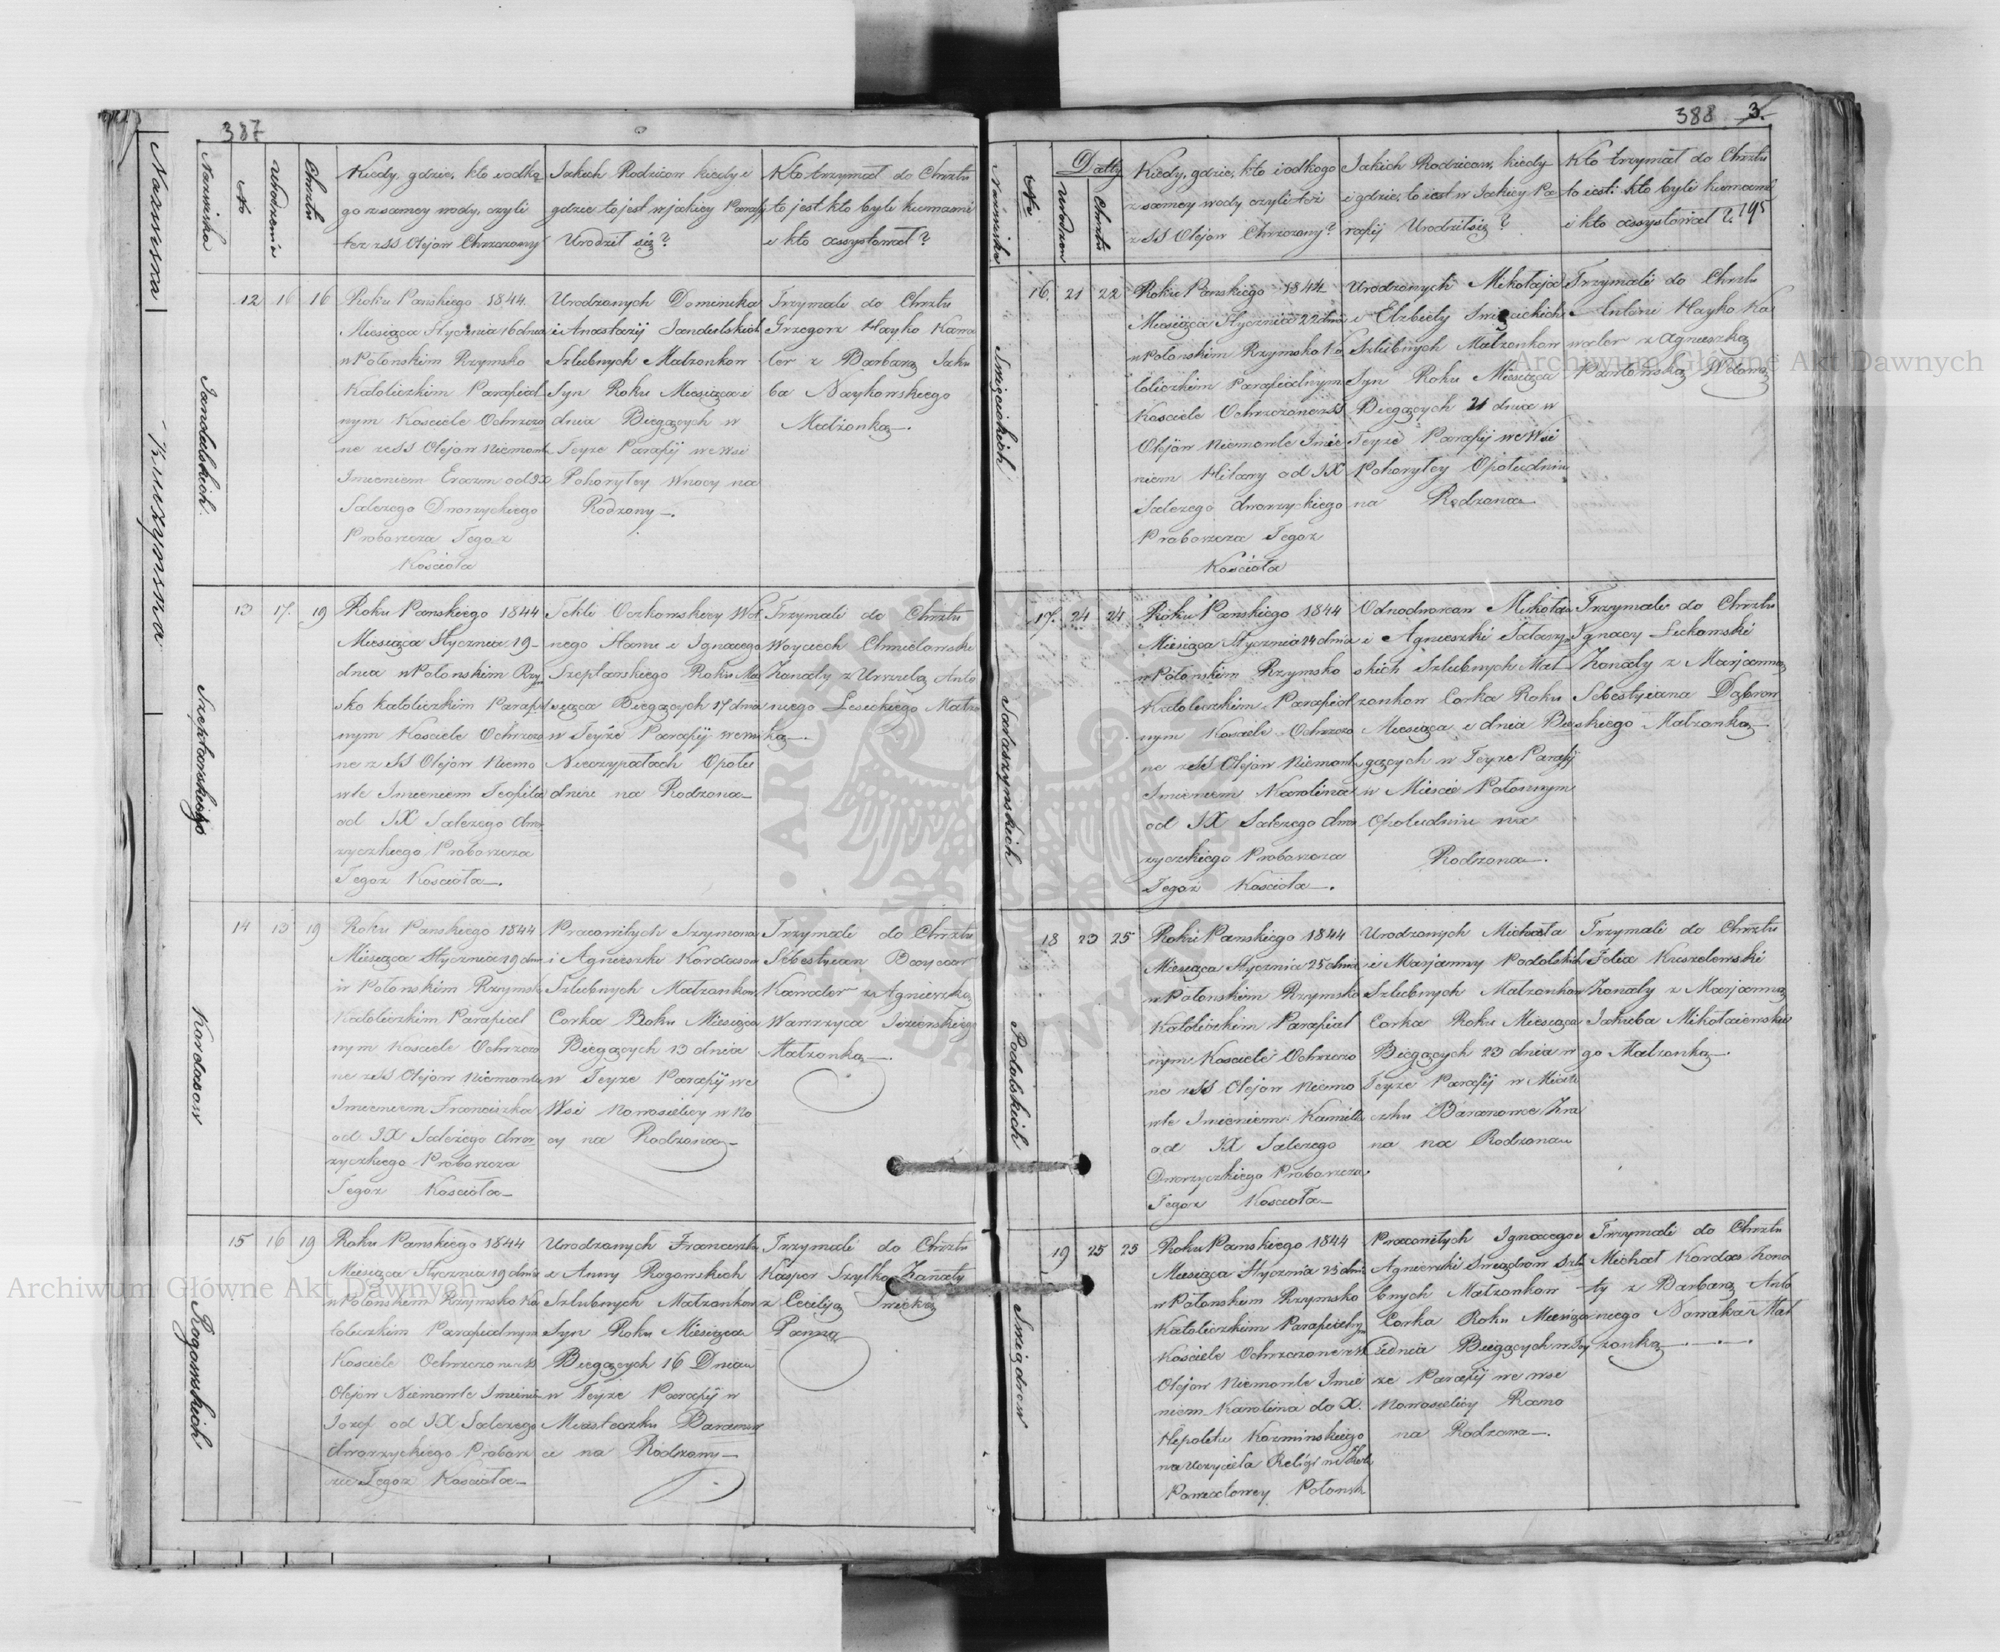 387
Nazwiska
№
Urodzenia
Chrztu
Kiedy, gdzie, kto i od ką
go z samey wody, czyli
też z SS Olejow Chrzczony
Jakich Rodzicow kiedy i
gdzie to jest w jakiey Parafij
Urodził się?
Kto trzymał do Chrztu
to jest kto byli kumami
i kto assystował?
Jandulskich
12 16 16
Roku Panskiego 1844
Miesiąca Stycznia 16 dnia
w Połonskim Rzymsko
Katolickim Parafial
nym Kosciele Ochrzczo
ne z SS Olejow Niemowle
Imieniem Erazm od JX
Salezego Dworzyckiego
Proboszcza Tegoz
Koscioła
Urodzonych Dominika
i Anastazij Jandulskich
Szlubnych Małzonkow
Syn Roku Miesiąca i
dnia Biegących w
Teyże Parafij we Wsi
Pohoryłey W nocy na
Rodzony
Trzymali do Chrztu
Grzegorz Hayko Kawa
ler z Barbarą Jaku
ba Naykowskiego
Małżonką
Szeptarskiego
13 17. 19
Roku Panskiego 1844
Miesiąca Stycznia 19
dnia w Połonskim Rzym
sko katolickim Parafial
nym Kosciele Ochrzczo
ne z SS Olejow Niemo
wle Imieniem Teofila
od JX Salezego dwo
rzyckiego Proboszcza
Tegoz Koscioła
Tekli Oczkowskiey Wol
nego Stanu i Ignacego
Szeptarskiego Roku Mie
siąca Biegących 17 dnia
w Teyże Parafij we wsi
Nieczypałach Opołu
dniu na Rodzona
Trzymali do Chrztu
Woyciech Chmielowski
Zonaty z Urszulą Anto
niego Lesieckiego Małzo
ką
Kordasow
14 13 19
Roku Panskiego 1844
Miesiąca Stycznia 19 dnia
w Połonskim Rzymsko
Katolickim Parafial
nym Kosciele Ochrzczo
ne z SS Olejow Niemowle
Imieniem Franciszka
od JX Salezego dwor
zyckiego Proboszcza
Tegoz Kosciola
Pracowitych Szymona
i Agnieszki Kordasow
Szlubnych Małzonkow
Corka Roku Miesiąca
Biegących 13 dnia
w Teyże Parafij we
Wsi Nowosielicy w No
cy na Rodzona
Trzymali do Chrztu
Sebestyan
Kawaler z Agnieszką
Wawrzyca
Małzonką
Rogowskich
15 16 19
Roku Panskiego 1844
Miesiąca Stycznia 19 dnia
w Połonskim Rzymsko Ka
tolickim Parafialnym
Kosciele Ochrzczone z SS
Olejow Niemowle Imieni
Jozef od JX Salezego
dworzyckiego Probosz
cza Tegoz Kosciola
Urodzonych Franciszka
i Anny Rogowskich
Szlubnych Małzonkow
Syn Roku Miesiąca
Biegących 16 Dnia
w Teyże Parafij w
Miasteczku Baranow
ce na Rodzony
Trzymali do Chrztu
Kasper Szylko Zonaty
z Cecilią
Panną
388 3.
Nazwiska
№
Datty
Urodzen
Chrztu
Kiedy, gdzie, kto i od kogo
z samey wody czyli też
z SS Olejow Chrzczony?
Jakich Rodzicow, kiedy
i gdzie, to iest w Jakiey Pa
rafij Urodził się?
Kto trzymał do Chrztu
to iest: kto byli kumami
i kto assystował? 195
16. 21 22
Roku Panskiego 1844
Miesiąca Stycznia 22 dnia
w Połonskim Rzymsko Ka
tolickim Parafialnym
Kosciele Ochrzczone z SS
Olejow Niemowle Imie
niem Hilary od JX
Salezego dworzyckiego
Proboszcza Tegoz
Kosciola
Urodzonych Mikołaja
i Elzbiety
Szlubnych Małzonkow
Syn Roku Miesiąca
Biegących 21 dnia w
Teyże Parafij we Wsi
Pohoryłey Opołudniu
na Rodzona
Trzymali do Chrztu
Antoni Hayko Ka
waler z Agnieszką
Pawłowską Wdową
Sałaszynskich
17. 24 24
Roku Panskiego 1844
Miesiąca Stycznia 24 dnia
w Połonskim Rzymsko
Katolickim Parafial
nym Kosciele Ochrzczo
ne z SS Olejow Niemowle
Imieniem Karolina
od JX Salezego dwo
rzyckiego Proboszcza
Tegoż Kosciola
Odnodworcow Mikołaia
i Agnieszki Sałaszyn
skich Szlubnych Mał
zonkow Corka Roku
Miesiąca i dnia Bie
gących w Teyże Parafij
w Miescie Połonnym
Opołudniu na
Rodzona
Trzymali do Chrztu
Ygnacy Lechowski
Zonaty z Marjanną
Sebestyiana Dąbrow
skiego Małzonką
Podolskich
18 23 25
Roku Panskiego 1844
Miesiąca Stycznia 25 dnia
w Połonskim Rzymsko
Katolickim Parafial
nym Kosciele Ochrzczo
ne z SS Olejow Niemo
wle Imieniem Kamilla
od JX Salezego
Dworzyckiego Proboszcza
Tegoz Kosciola
Urodzonych Michała
i Marjanny Podolskich
Szlubnych Małzonkow
Corka Roku Miesiąca
Biegących 23 dnia w
Teyże Parafij w Miaste
czku Baranowce Zra
na na Rodzona
Trzymali do Chrztu
Felix Kuszelewski
Zonaty z Marjanną
Jakuba Mikołaiewskie
go Małzonką
19 25 25
Roku Panskiego 1844
Miesiąca Stycznia 25 dnia
w Połonskim Rzymsko
Katolickim Parafialnym
Kosciele Ochrzczone z SS
Olejow Niemowle Imie
niem Karolina do X.
Hipolita Kozminskiego
nauczyciela Religi w Szkole
Powiatowey Połonsk
Pracowitych Ignacego i
Agnieszki Szlu
bnych Małzonkow
Corka Roku Miesiąca
i dnia Biegących w Tey
że Parafij we wsi
Nowosielicy Rano
na Rodzona
Trzymali do Chrztu
Michał Kordas Zona
ty z Barbarą Anto
niego Nowaka Mał
zonką
Archiwum Główne Akt Dawnych
Archiwum Główne Akt Dawnych